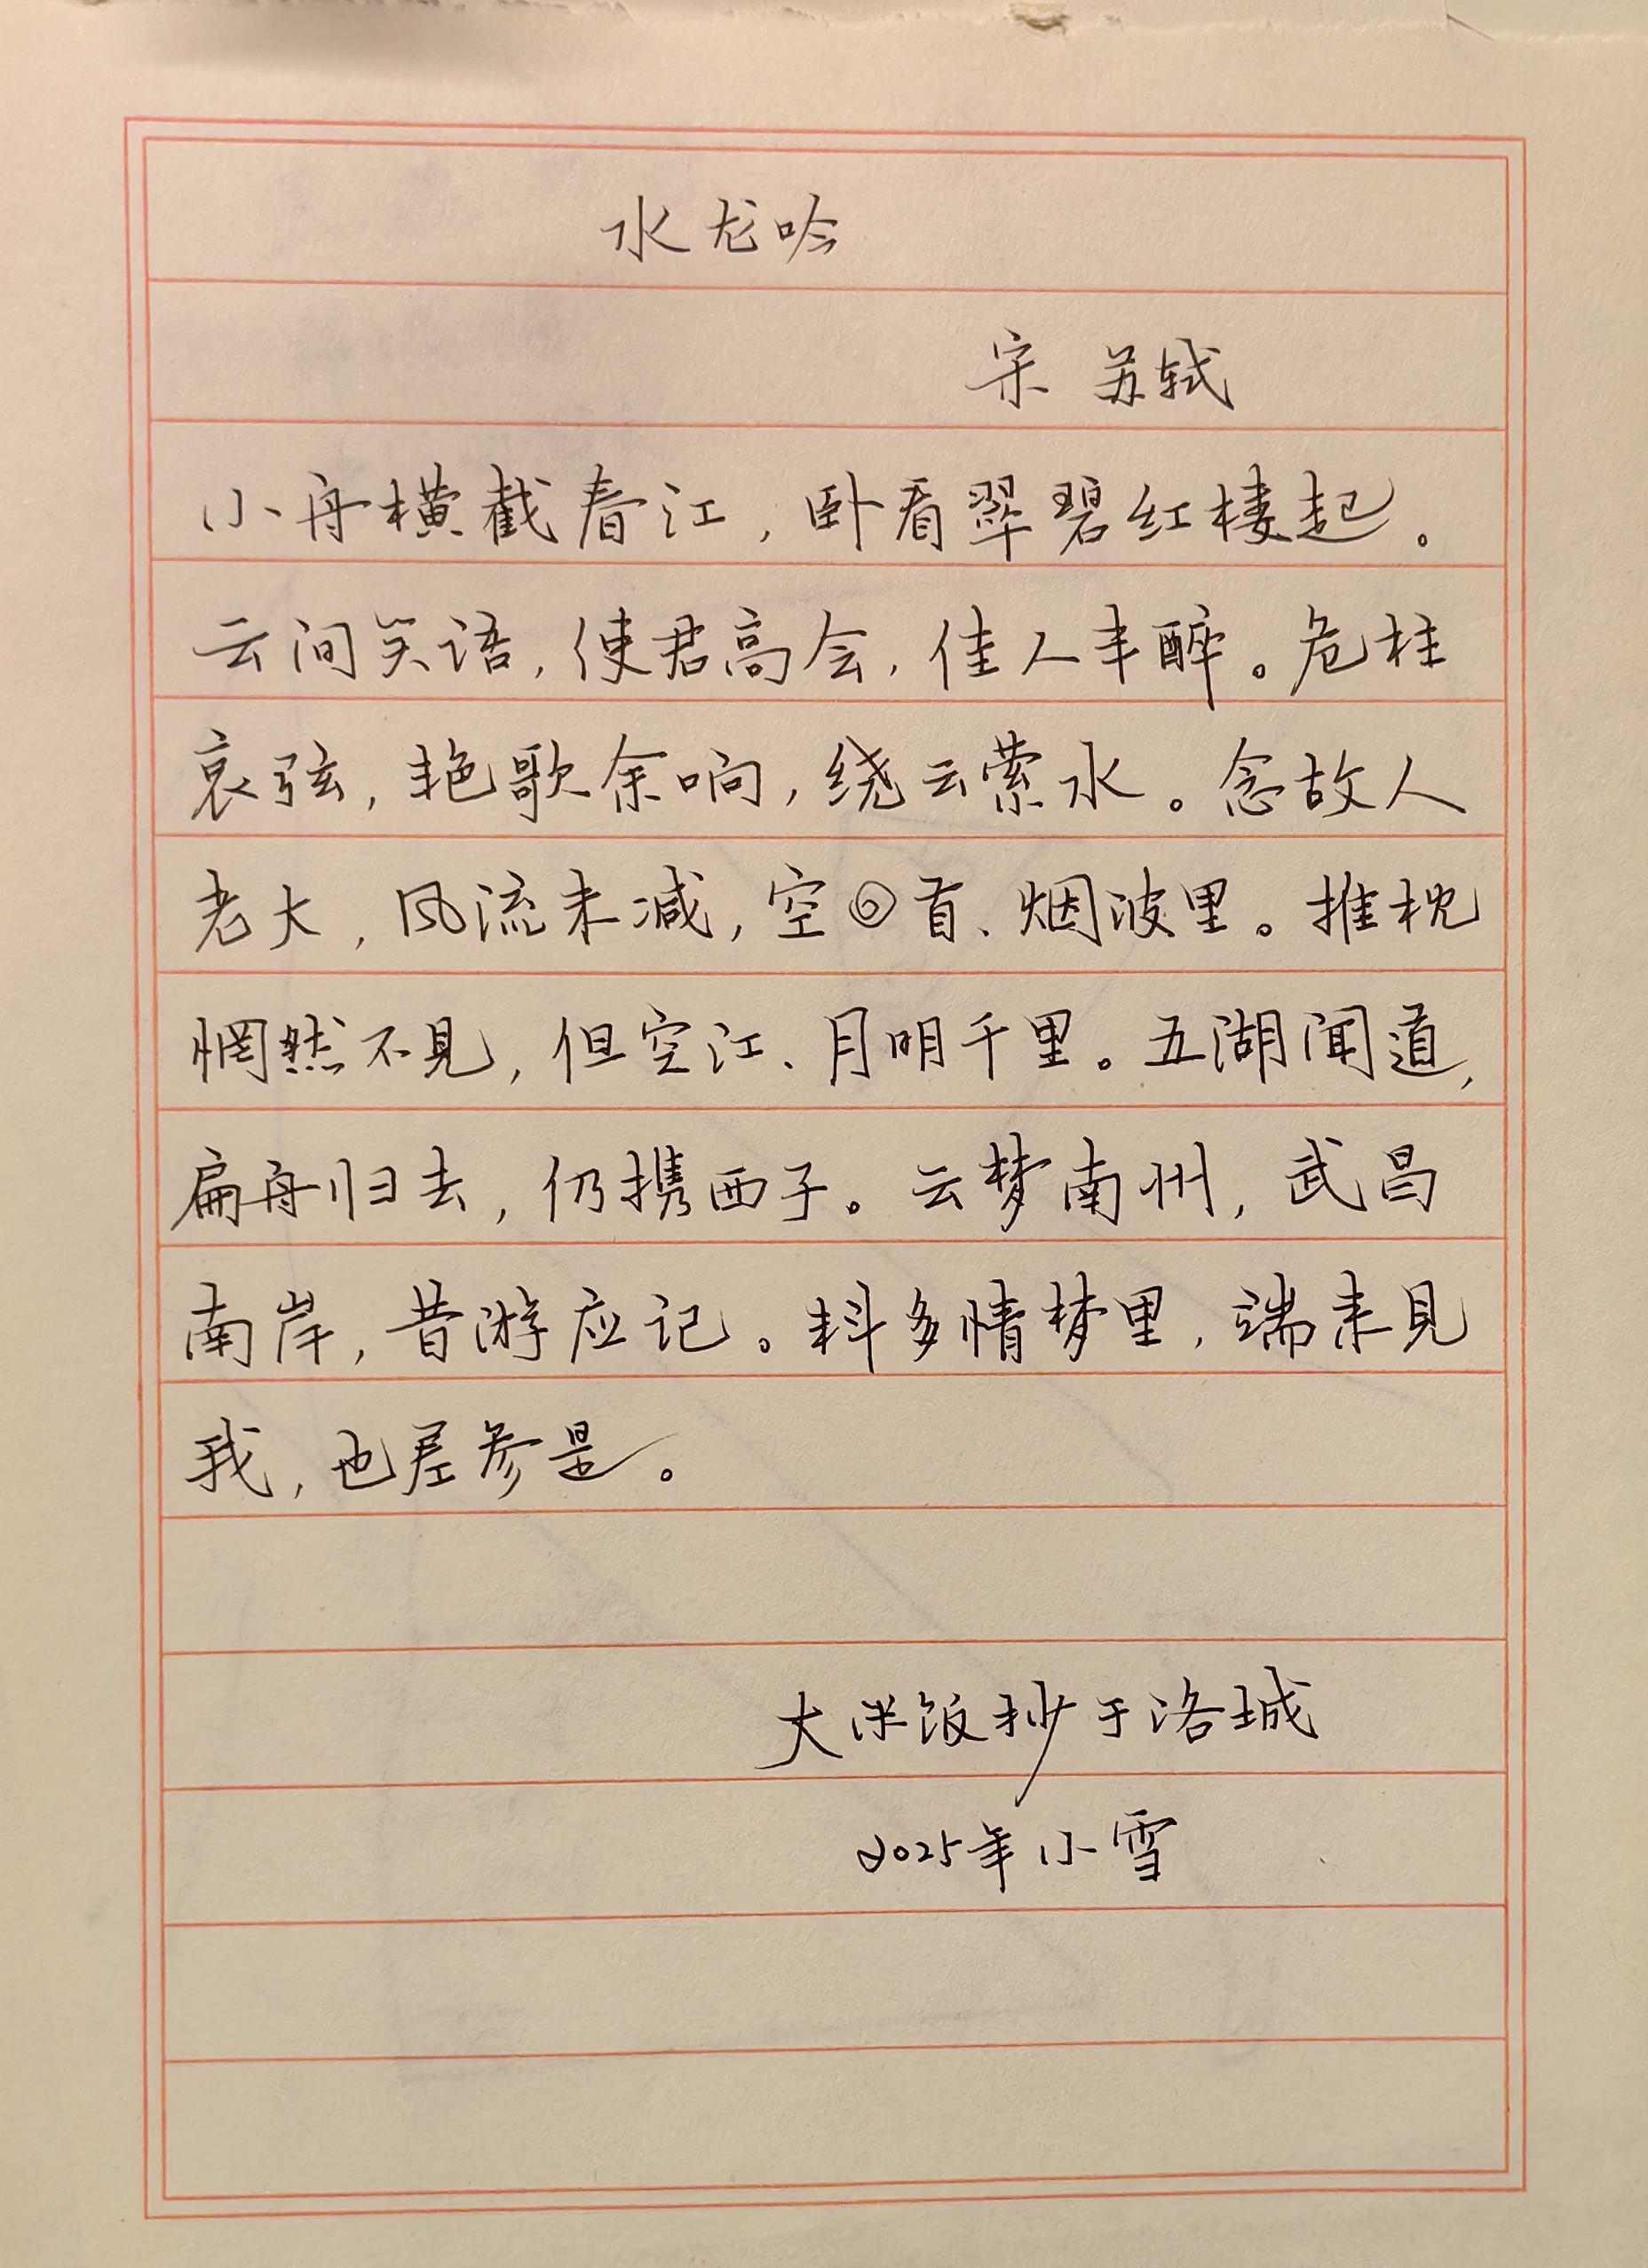 水龙吟
宋 苏轼
小舟横截春江,卧看翠碧红楼起。
云间笑语,使君高会,佳人半醉。危柱
哀弦,艳歌余响,绕云萦水。念故人
老大,风流未减,空回首、烟波里。推枕
惘然不见,但空江、月明千里。五湖闻道,
扁舟归去,仍携西子。云梦南州,武昌
南岸,昔游应记。料多情梦里,端来见
我,也差参是。
大米饭抄于洛城
2025年小雪